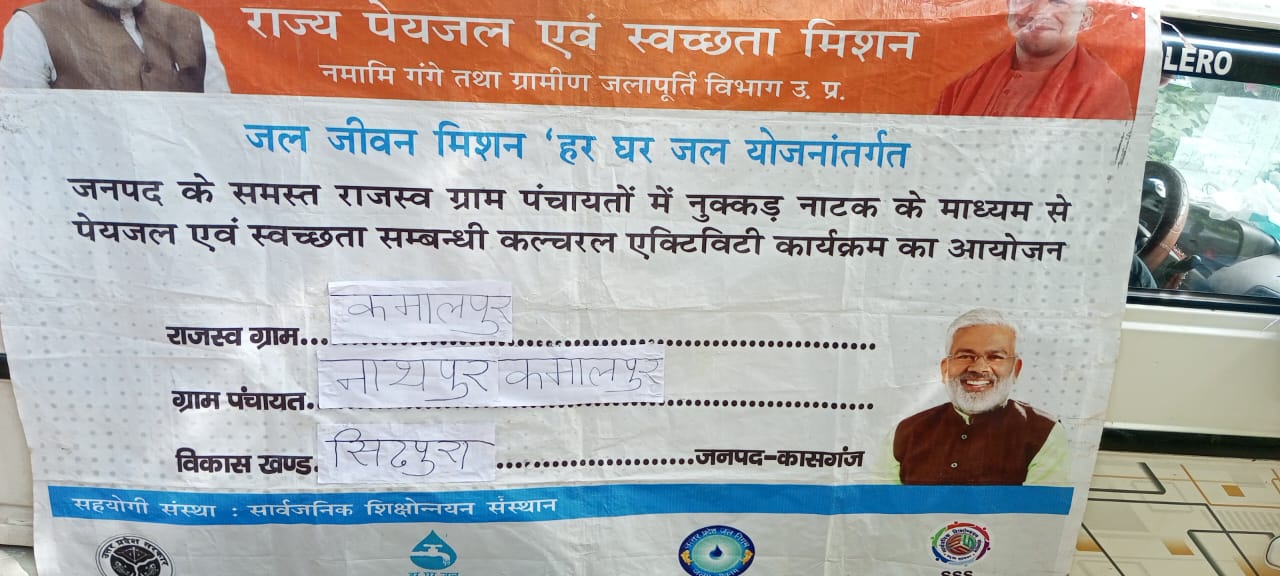 राज्य पेयजल एवं स्वच्छता मिशन
नमामि गंगे तथा ग्रामीण जलापूर्ति विभाग उ. प्र.
LERO
जल जीवन मिशन ‘हर घर जल योजनांतर्गत
जनपद के समस्त राजस्व ग्राम पंचायतों में नुक्कड़ नाटक के माध्यम से
पेयजल एवं स्वच्छता सम्बन्धी कल्चरल एक्टिविटी कार्यक्रम का आयोजन
राजस्व ग्राम... कमालपुर
ग्राम पंचायत. नाथपुर कमालपुर
विकास खण्ड. सिढपुरा जनपद-कासगंज
सहयोगी संस्था : सार्वजनिक शिक्षोन्नयन संस्थान
उत्तर प्रदेश सरकार
हर घर जल
उत्तर प्रदेश जल निगम
SSS